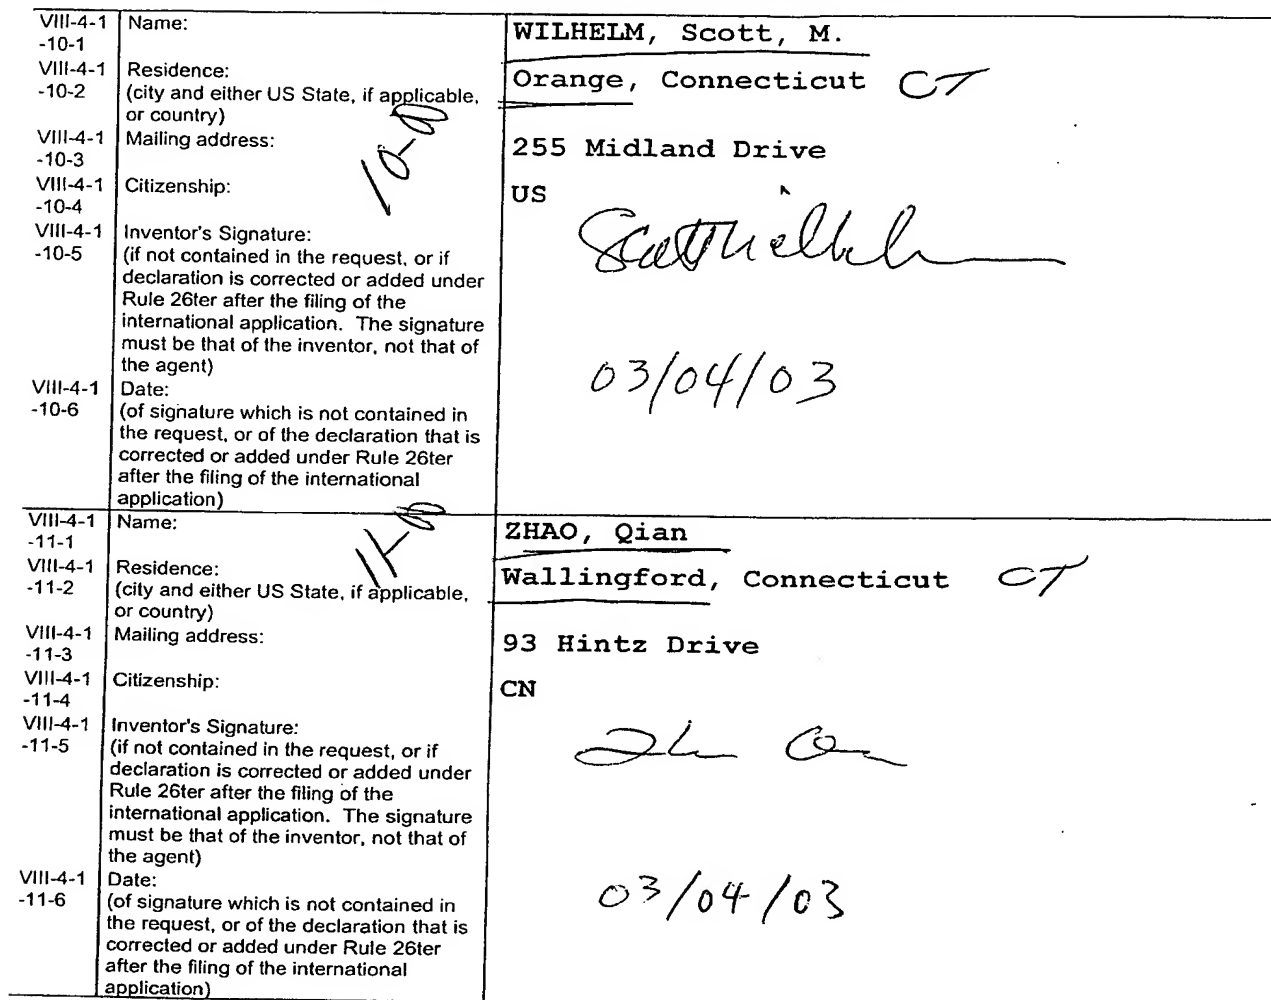 VIII-4-1 Name: WILHELM, Scott, M.
-10-1
VIII-4-1 Residence: Orange, Connecticut CT
-10-2 (city and either US State, if applicable,
or country)
VIII-4-1 Mailing address: 255 Midland Drive
-10-3
10-00
VIII-4-1 Citizenship: US
-10-4
VIII-4-1 Inventor's Signature:
-10-5 (if not contained in the request, or if
declaration is corrected or added under
Rule 26ter after the filing of the
international application. The signature
must be that of the inventor, not that of
the agent)
VIII-4-1 Date: 03/04/03
-10-6 (of signature which is not contained in
the request, or of the declaration that is
corrected or added under Rule 26ter
after the filing of the international
application)
VIII-4-1 Name: ZHAO, Qian
-11-1
11-00
VIII-4-1 Residence: Wallingford, Connecticut CT
-11-2 (city and either US State, if applicable,
or country)
VIII-4-1 Mailing address: 93 Hintz Drive
-11-3
VIII-4-1 Citizenship: CN
-11-4
VIII-4-1 Inventor's Signature:
-11-5 (if not contained in the request, or if
declaration is corrected or added under
Rule 26ter after the filing of the
international application. The signature
must be that of the inventor, not that of
the agent)
VIII-4-1 Date: 03/04/03
-11-6 (of signature which is not contained in
the request, or of the declaration that is
corrected or added under Rule 26ter
after the filing of the international
application)